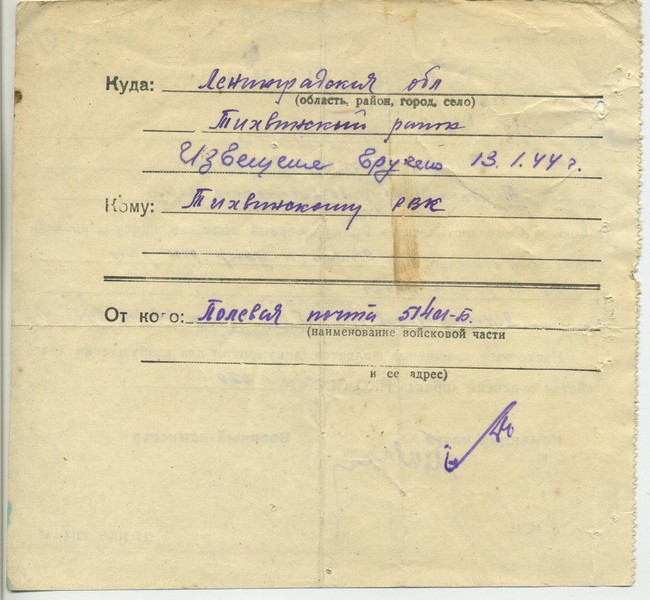 Куда: Ленинградская обл
(область, район, город, село)
Тихвинский район
Извещение вручено 13.1.44 г.
Кому: Тихвинскому РВК
От кого: Полевая почта 51401-Б.
(наименование войсковой части
и ее адрес)